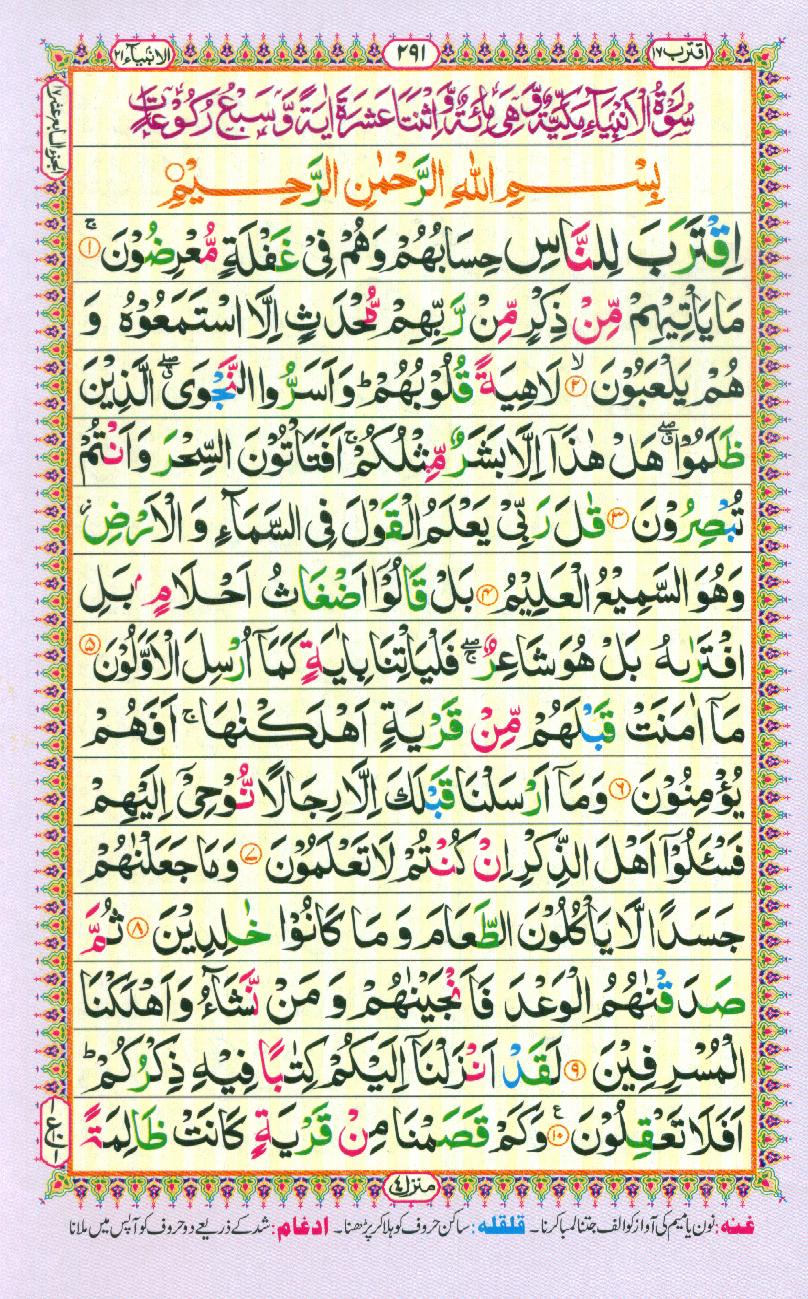 اقترب ١٧
٢٩١
الانبيآء ٢١
سُوْرَةُ الْاَنْبِيَآءِ مَكِّيَّةٌ وَّهِيَ مِائَةٌ وَّاثْنَتَا عَشَرَةَ اٰيَةً وَّسَبْعُ رُكُوْعَاتٍ
الجزء السابع عشر ١٧
بِسْمِ اللّٰهِ الرَّحْمٰنِ الرَّحِيْمِ
اِقْتَرَبَ لِلنَّاسِ حِسَابُهُمْ وَهُمْ فِيْ غَفْلَةٍ مُّعْرِضُوْنَ ۚ ۝١
مَا يَاْتِيْهِمْ مِّنْ ذِكْرٍ مِّنْ رَّبِّهِمْ مُّحْدَثٍ اِلَّا اسْتَمَعُوْهُ وَ
هُمْ يَلْعَبُوْنَ ۙ ۝٢ لَاهِيَةً قُلُوْبُهُمْ ؕ وَاَسَرُّوا النَّجْوَى ۖۗ الَّذِيْنَ
ظَلَمُوْا ۖۗ هَلْ هٰذَآ اِلَّا بَشَرٌ مِّثْلُكُمْ ۚ اَفَتَاْتُوْنَ السِّحْرَ وَاَنْتُمْ
تُبْصِرُوْنَ ۝٣ قٰلَ رَبِّيْ يَعْلَمُ الْقَوْلَ فِي السَّمَآءِ وَ الْاَرْضِ ۡ
وَهُوَ السَّمِيْعُ الْعَلِيْمُ ۝٤ بَلْ قَالُوْٓا اَضْغَاثُ اَحْلَامٍ ۢ بَلِ
افْتَرٰىهُ بَلْ هُوَ شَاعِرٌ ۖۚ فَلْيَاْتِنَا بِاٰيَةٍ كَمَآ اُرْسِلَ الْاَوَّلُوْنَ ۝٥
مَآ اٰمَنَتْ قَبْلَهُمْ مِّنْ قَرْيَةٍ اَهْلَكْنٰهَا ۚ اَفَهُمْ
يُؤْمِنُوْنَ ۝٦ وَمَآ اَرْسَلْنَا قَبْلَكَ اِلَّا رِجَالًا نُّوْحِيْٓ اِلَيْهِمْ
فَسْـَٔلُوْٓا اَهْلَ الذِّكْرِ اِنْ كُنْتُمْ لَا تَعْلَمُوْنَ ۝٧ وَمَا جَعَلْنٰهُمْ
جَسَدًا لَّا يَاْكُلُوْنَ الطَّعَامَ وَ مَا كَانُوْا خٰلِدِيْنَ ۝٨ ثُمَّ
صَدَقْنٰهُمُ الْوَعْدَ فَاَنْجَيْنٰهُمْ وَ مَنْ نَّشَآءُ وَاَهْلَكْنَا
الْمُسْرِفِيْنَ ۝٩ لَقَدْ اَنْزَلْنَآ اِلَيْكُمْ كِتٰبًا فِيْهِ ذِكْرُكُمْ ؕ
اَفَلَا تَعْقِلُوْنَ ۝١٠ ع وَكَمْ قَصَمْنَا مِنْ قَرْيَةٍ كَانَتْ ظَالِمَةً
منزل ٤
غنه: نون یا میم کی آواز کو الف جتنا لمبا کرنا۔ قلقله: ساکن حروف کو ہلا کر پڑھنا۔ ادغام: شد کے ذریعے دو حروف کو آپس میں ملانا